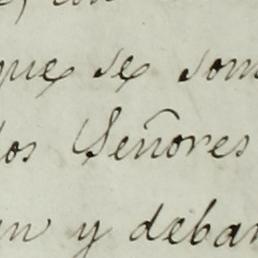 que se som
los Señores
an y deban